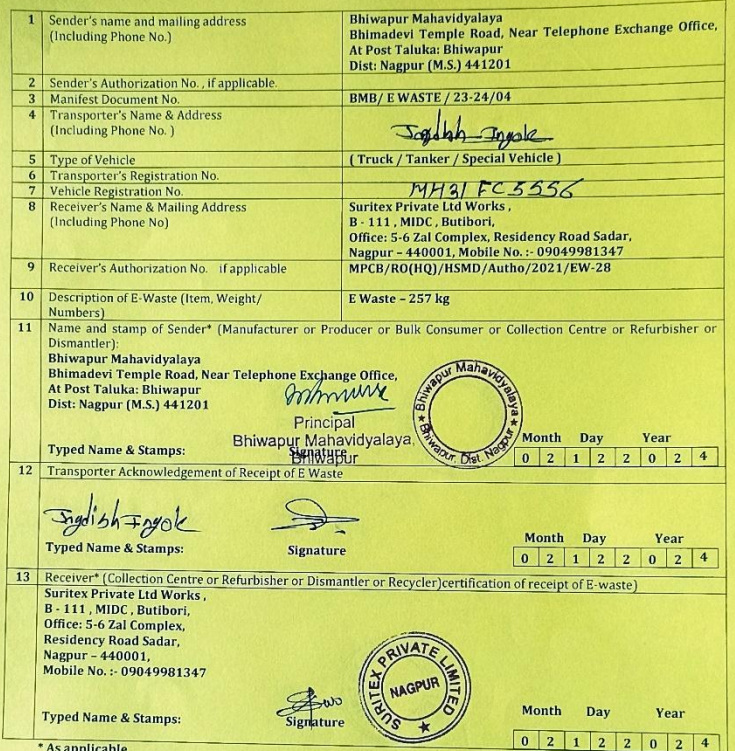 1 Sender's name and mailing address
(Including Phone No.)
Bhiwapur Mahavidyalaya
Bhimadevi Temple Road, Near Telephone Exchange Office,
At Post Taluka: Bhiwapur
Dist: Nagpur (M.S.) 441201
2 Sender's Authorization No. , if applicable.
3 Manifest Document No.
BMB/ E WASTE / 23-24/04
4 Transporter's Name & Address
(Including Phone No. )
Jagdish Ingole
5 Type of Vehicle
( Truck / Tanker / Special Vehicle )
6 Transporter's Registration No.
7 Vehicle Registration No.
MH31 FC 5556
8 Receiver's Name & Mailing Address
(Including Phone No)
Suritex Private Ltd Works ,
B - 111 , MIDC , Butibori,
Office: 5-6 Zal Complex, Residency Road Sadar,
Nagpur - 440001, Mobile No. :- 09049981347
9 Receiver's Authorization No. if applicable
MPCB/RO(HQ)/HSMD/Autho/2021/EW-28
10 Description of E-Waste (Item, Weight/
Numbers)
E Waste – 257 kg
11 Name and stamp of Sender* (Manufacturer or Producer or Bulk Consumer or Collection Centre or Refurbisher or
Dismantler):
Bhiwapur Mahavidyalaya
Bhimadevi Temple Road, Near Telephone Exchange Office,
At Post Taluka: Bhiwapur
Dist: Nagpur (M.S.) 441201
Principal
Bhiwapur Mahavidyalaya,
Bhiwapur
Typed Name & Stamps:
Signature
Bhiwapur Mahavidyalaya
★ Bhiwapur, Dist. Nagpur ★
Month Day Year
0 2 1 2 2 0 2 4
12 Transporter Acknowledgement of Receipt of E Waste
Jagdish Ingole
Typed Name & Stamps:
Signature
Month Day Year
0 2 1 2 2 0 2 4
13 Receiver* (Collection Centre or Refurbisher or Dismantler or Recycler)certification of receipt of E-waste)
Suritex Private Ltd Works ,
B - 111 , MIDC , Butibori,
Office: 5-6 Zal Complex,
Residency Road Sadar,
Nagpur – 440001,
Mobile No. :- 09049981347
Typed Name & Stamps:
Signature
SURITEX PRIVATE LIMITED
NAGPUR
★
Month Day Year
0 2 1 2 2 0 2 4
* As applicable